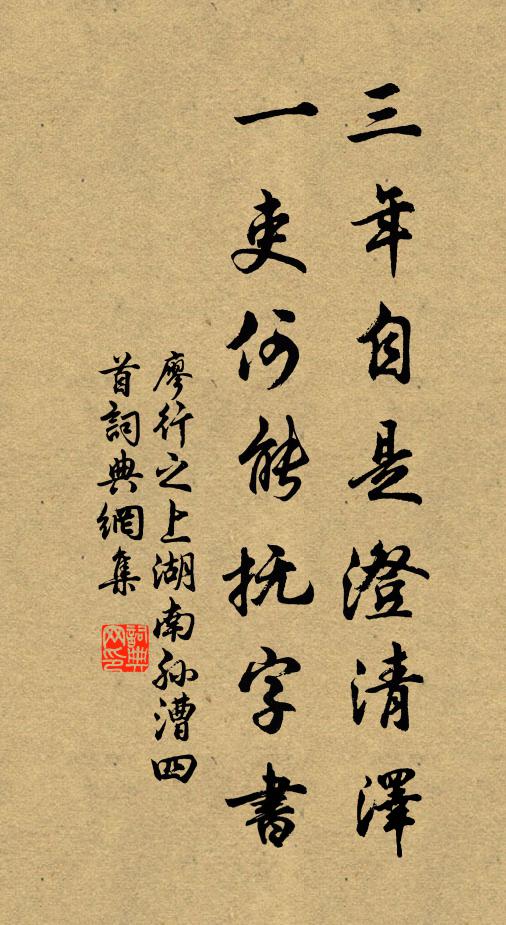 三年自是澄清澤
一吏何能抚字書
廖行之上湖南孙漕四
首詞典網集
詞典网印